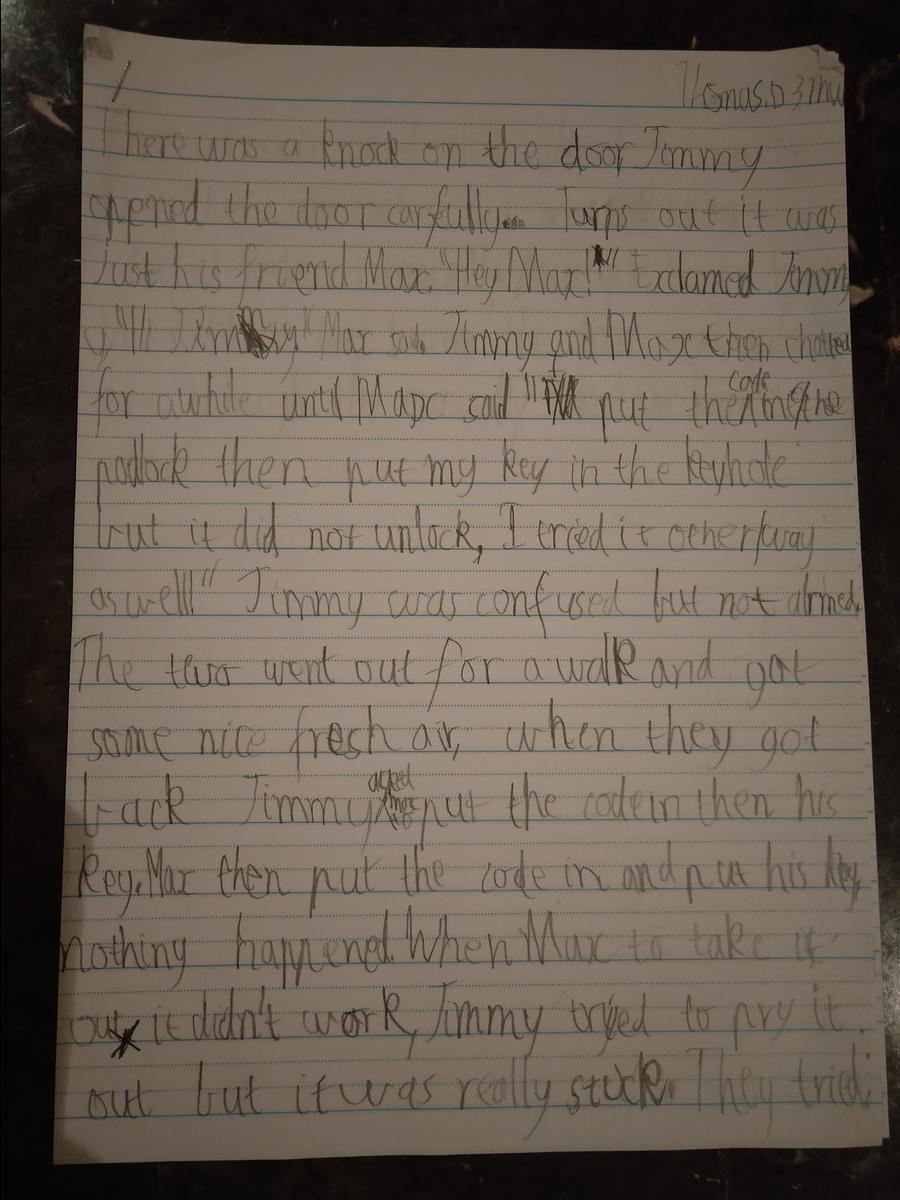 Thomas.D 3MW
There was a knock on the door Jimmy
opened the door carfully... Turns out it was
Just his friend Max. "Hey Max!" Exclamed Jimm
y "Hi Jimmy" Max said. Jimmy and Max then chatted
for awhile until Maxx said "I put the code in the
padlock then put my key in the keyhole
but it did not unlock, I tried it other way
as well!" Jimmy was confused but not alrmed.
The two went out for a walk and got
some nice fresh air, when they got
back Jimmy asked Max to put the code in then his
key. Max then put the code in and put his key,
nothing happened. When Max to take it
out it didn't work, Jimmy tryed to pry it
out but it was really stuck. They tried